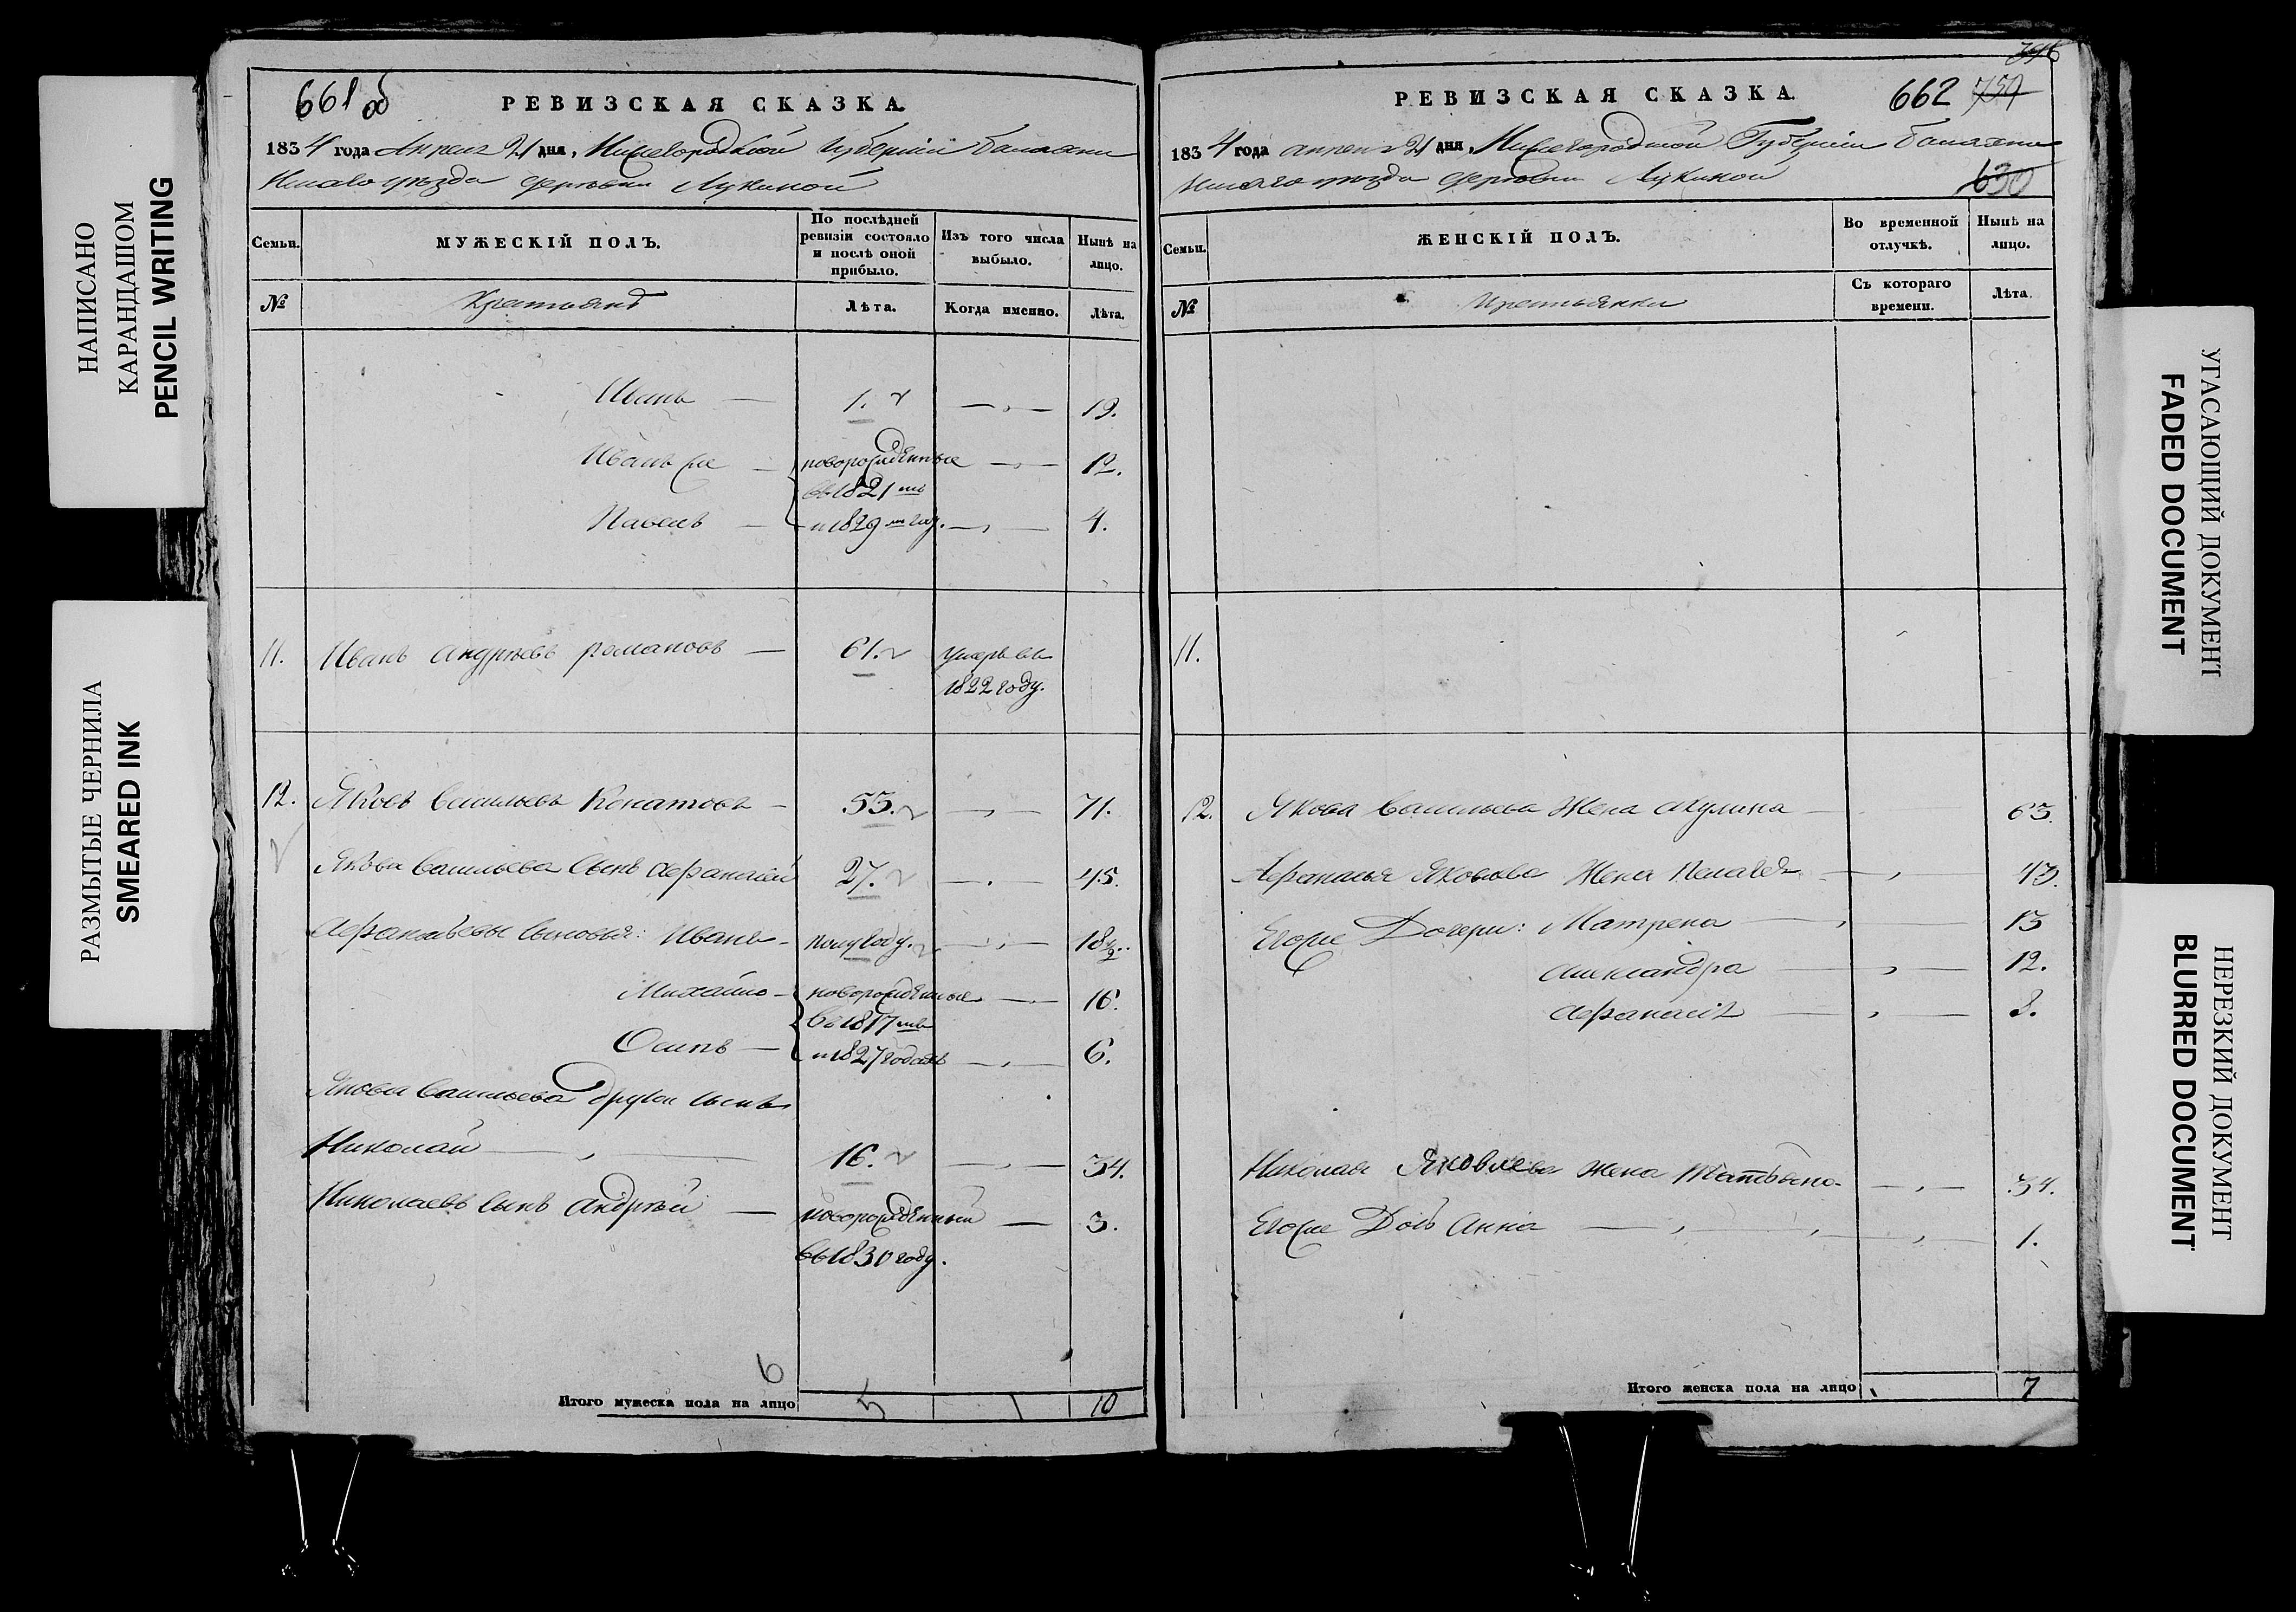 НАПИСАНО
КАРАНДАШОМ
PENCIL WRITING
РАЗМЫТЫЕ ЧЕРНИЛА
SMEARED INK
661 об
РЕВИЗСКАЯ СКАЗКА.
1834 года Апреля 21 дня, Нижегородской Губернии Балахни
нскаго уезда деревни Лукиной
Семьи. МУЖЕСКІЙ ПОЛЪ. По послѣдней ревизіи состояло и послѣ оной прибыло. Изъ того числа выбыло. Нынѣ на лицо.
№ Крестьянъ Лѣта. Когда именно. Лѣта.
Иванъ 1. 19.
Иванъ же новорожденные 12.
въ 1821 мъ
Павелъ и 1829 мъ году. 4.
11. Иванъ Андреевъ Романовъ 61. умеръ въ
1822 году.
12. Яковъ Васильевъ 55. 71.
Якова Васильева сынъ Афанасей 27. 45.
Афанасьевы сыновья: Иванъ полугоду. 18½.
Михайло новорожденные 16.
въ 1817 мъ
Осипъ и 1827 годахъ 6.
Якова Васильева другой сынъ
Николай 16. 34.
Николаевъ сынъ Андрей новорожденный 3.
въ 1830 году.
6
Итого мужеска пола на лицо 5 1 10
662 739
РЕВИЗСКАЯ СКАЗКА.
1834 года апреля 21 дня, Нижегородской Губернии Балахни
нскаго уезда деревни Лукиной
630
Семьи. ЖЕНСКІЙ ПОЛЪ. Во временной отлучкѣ. Нынѣ на лицо.
№ Крестьянки Съ котораго времени. Лѣта.
11.
12. Якова Васильева жена Акулина 63.
Афанасья Яковлева жена Пелагея 43.
Егоже дочери: Матрена 15
Александра 12.
Афанасія 8.
Николая Яковлева жена Татьяна 34.
Егоже дочь Анна 1.
Итого женска пола на лицо 7
УГАСАЮЩИЙ ДОКУМЕНТ
FADED DOCUMENT
НЕРЕЗКИЙ ДОКУМЕНТ
BLURRED DOCUMENT